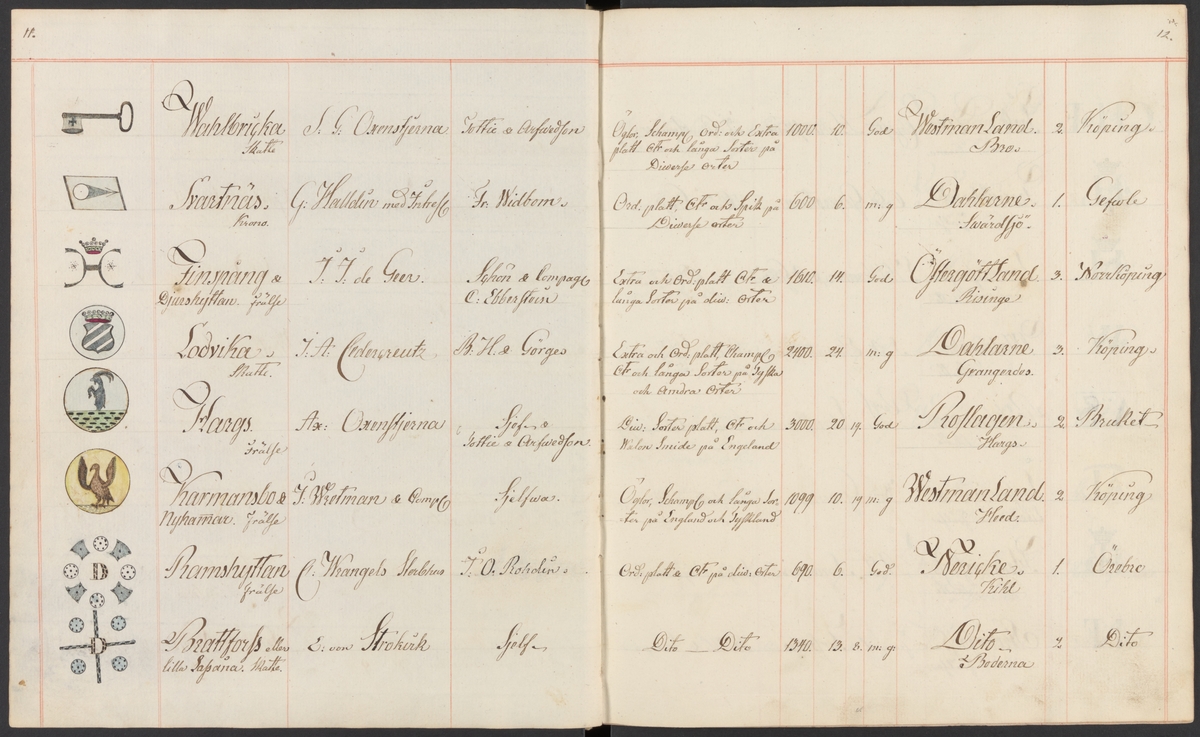 11.
12.
Wahlbricka S. G. Oxenstjerna Tottie & Arfwedson Öglor, Schamp, Ord: och Extra 1000. 10. God WestmanLand. 2. Köping.
Skatte platt Ctr och långa Sorter på Bro.
Diverse orter
Svartnäs. G: Halldin med Intress Fr. Widbom. Ord: platt Ctr och Spik på 600 6. m: g Dahlarne. 1. Gefwle
Krono. Diverse orter Swärdsjö.
Finspång & J. J. de Geer. Schön & Compag Extra och Ord: platt Ctr & 1610 14. God Östergöttland 3. Norrköping
Djurshyttan. Frälse C: Eberstein långa Sorter på div: Orter Risinge
Lodvika. J. A: Cedercreutz B. H. & Görges Extra och Ord: platt, Champ 2400. 24. m: g Dahlarne 3. Köping.
Skatte. Ctr och långa Sorter på Tyska Grangerdes.
och Andra Orter
Hargs. Ax: Oxenstjerna Sjelf & Div: Sorter platt, Ctr och 3000. 20 19. God Roslagen 2 Bruket
Frälse Tottie & Arfwedson. Walon Smide på Engeland Hargs.
Karmansbo & J. Wretman & Comp Sjelfwa. Öglor, Schamp och långa Sor- 1099 10. 19 m: g WestmanLand 2 Köping
Nyhamar. Frälse ter på England och Tyskland Heed.
D
Ramshyttan C: Wrangels Sterbhus J. O: Rohdin. Ord: platt & Ctr på div: Orter 690. 6. God. Nericke. 1. Örebro
Frälse Kihl
D
Brattforss eller E: von Strokirk Sjelf Dito Dito 1340. 13. 8. m: g: Dito 2 Dito
lilla Saxåna. Skatte. Boderna